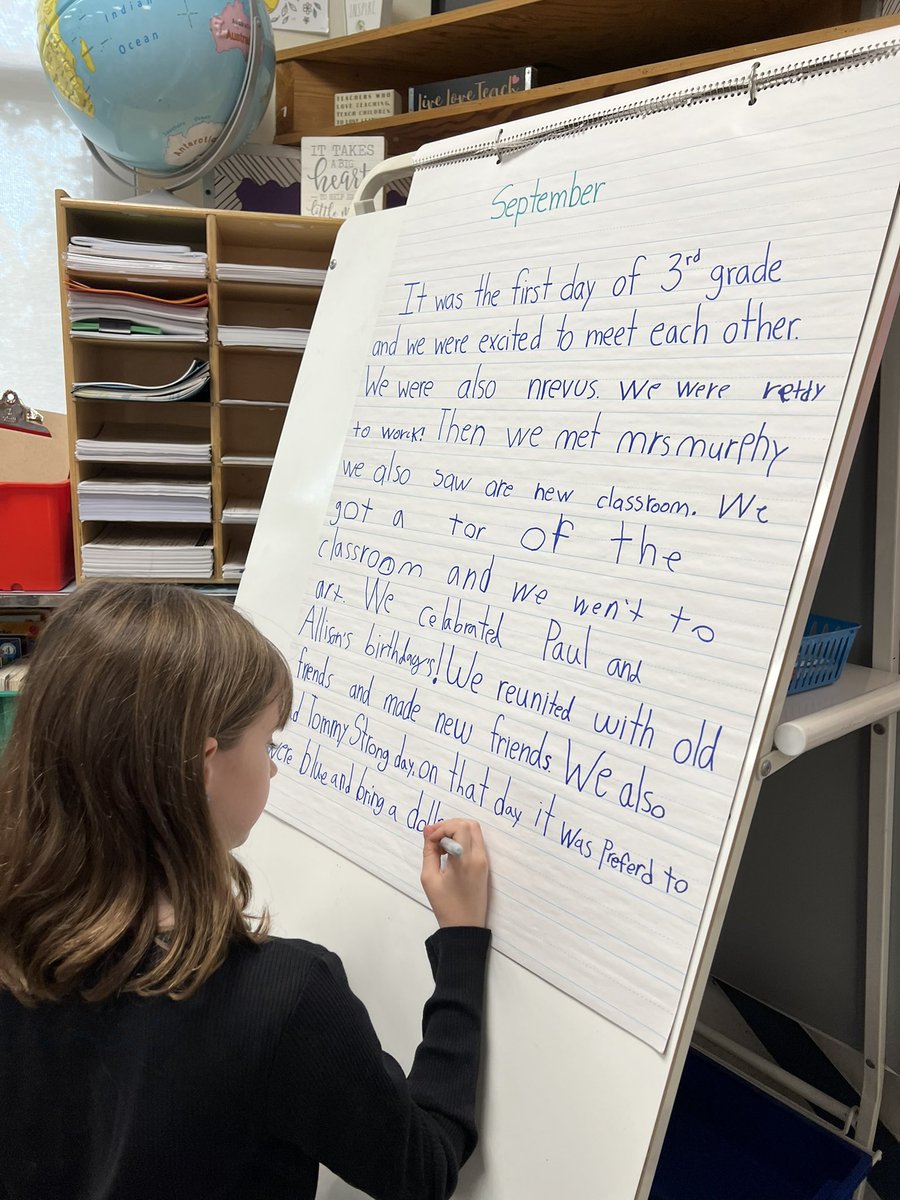 Indian
Ocean
Australia
Antarctic
INSPIRE
TEACHERS WHO
LOVE TEACHING,
TEACH CHILDREN
TO LOVE
Live Love Teach
IT TAKES
A BIG
heart
little
September
It was the first day of 3rd grade
and we were excited to meet each other.
We were also nrevus. We were
to worck! Then we met mrs murphy
we also saw are new classroom. We
got a tor of the
classroom and we wen't to
art. We celabrated Paul and
Allison's birthday's! We reunited with old
friends and made new friends. We also
Tommy Strong day. on that day it was Preferd to
were blue and bring a